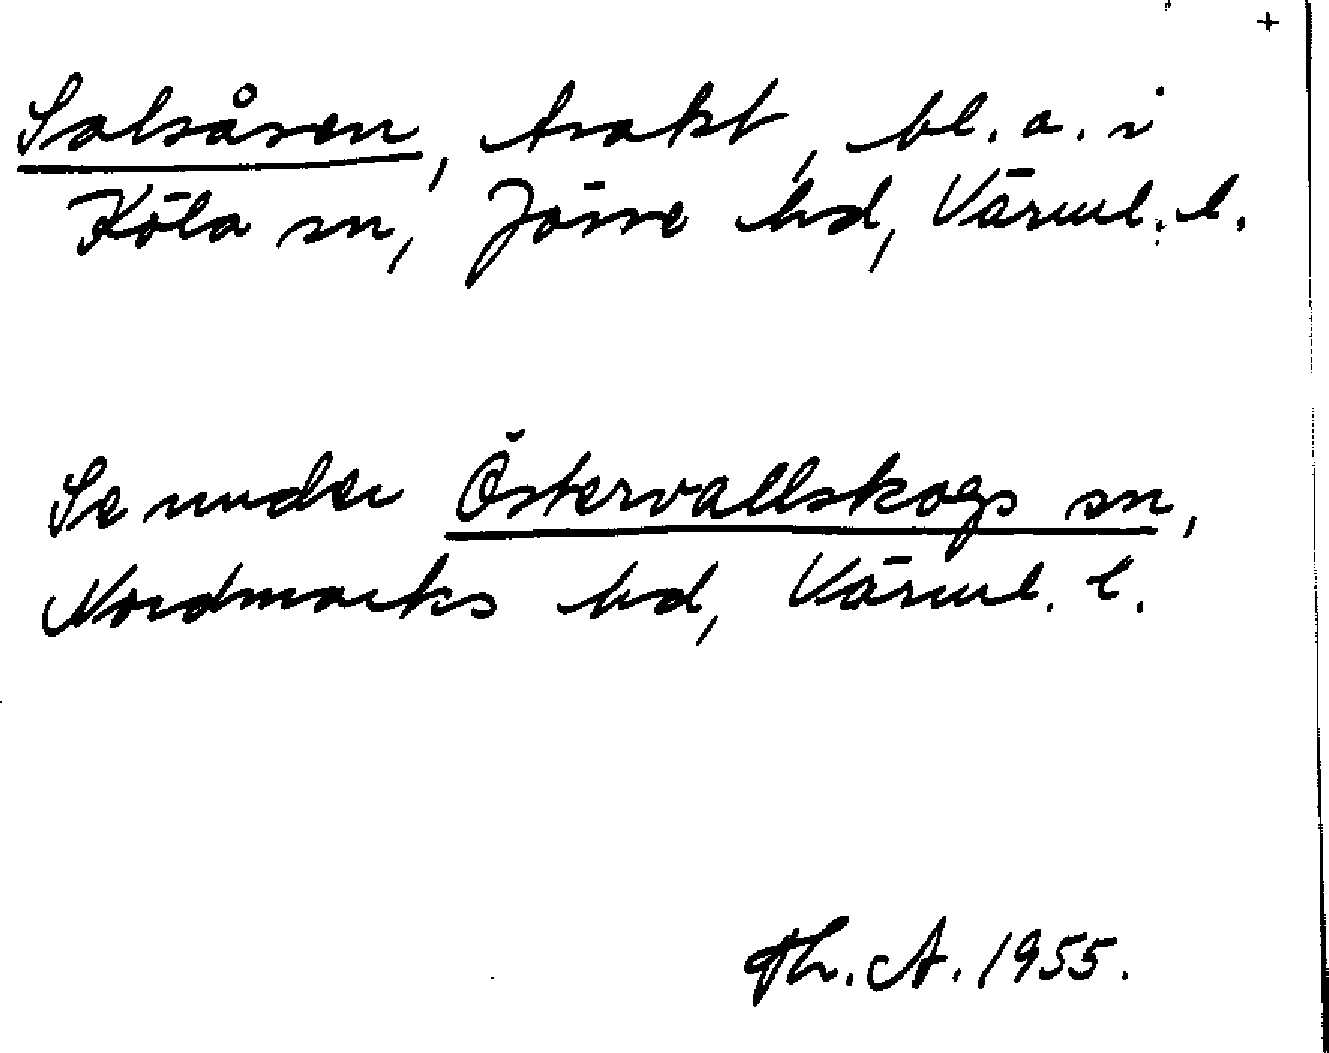 +
Salsåsen, trakt, bl. a. i
Köla sn, Jösse hd, Värml. l.
Se under Östervallskogs sn,
Nordmarks hd, Värml. l.
Th. A. 1955.